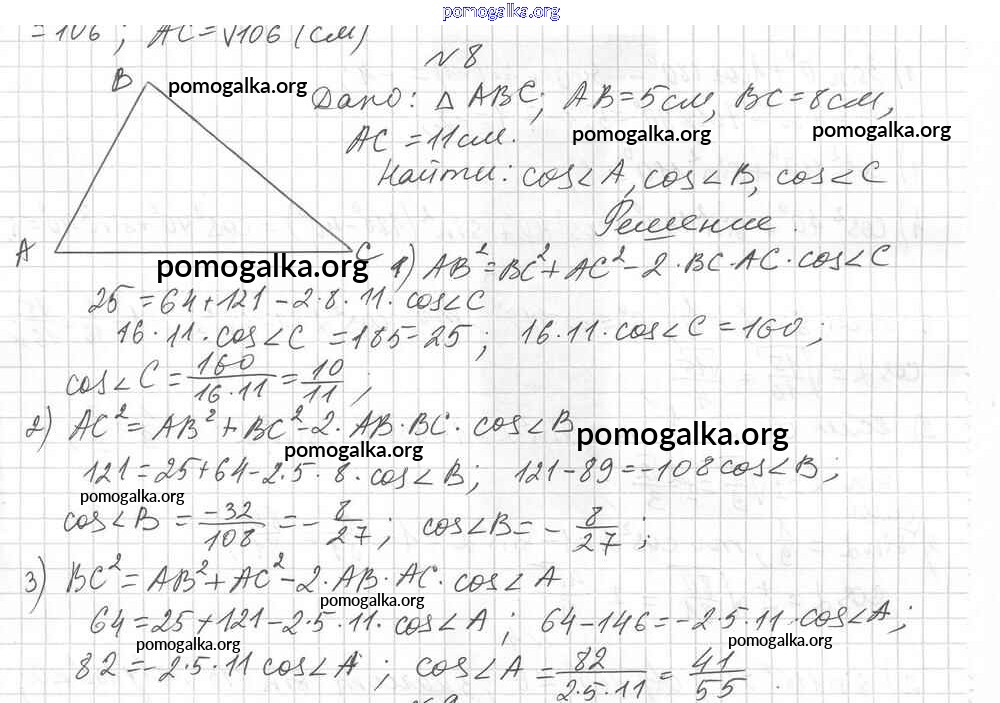 pomogalka.org
= 106 ; AC = √106 (см)
№ 8
B
pomogalka.org
Дано: △ ABC; AB = 5 см, BC = 8 см,
AC = 11 см.
pomogalka.org
pomogalka.org
Найти: cos∠A, cos∠B, cos∠C
Решение.
A
C
pomogalka.org
1) AB² = BC² + AC² - 2 · BC · AC · cos∠C
25 = 64 + 121 - 2 · 8 · 11 · cos∠C
16 · 11 · cos∠C = 185 - 25 ; 16 · 11 · cos∠C = 160 ;
cos∠C = 160/16 · 11 = 10/11 ;
2) AC² = AB² + BC² - 2 · AB · BC · cos∠B
pomogalka.org
pomogalka.org
121 = 25 + 64 - 2 · 5 · 8 · cos∠B ; 121 - 89 = -108 cos∠B ;
pomogalka.org
cos∠B = -32/108 = - 8/27 ; cos∠B = - 8/27 ;
3) BC² = AB² + AC² - 2 · AB · AC · cos∠A
pomogalka.org
64 = 25 + 121 - 2 · 5 · 11 · cos∠A ; 64 - 146 = -2 · 5 · 11 · cos∠A ;
pomogalka.org
pomogalka.org
82 = -2 · 5 · 11 cos∠A ; cos∠A = 82/2 · 5 · 11 = 41/55 .